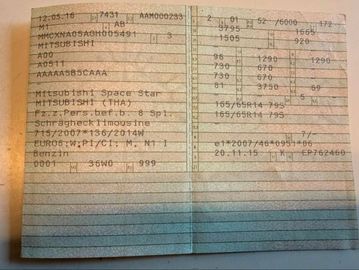 12.05.16 7431 AAM000233
M1 AB
MMCXNA05A0H005491 3
MITSUBISHI
A00
A0511
AAAAA5B5CAAA
Mitsubishi Space Star
MITSUBISHI (THA)
Fz.z.Pers.bef.b. 8 Spl.
Schräghecklimousine
715/2007*136/2014W
EURO6;W,PI/CI; M, N1 I
Benzin
0001 36W0 999
2 01 52 /6000 172
3795 1665
1505 920
96 1290 1290
730 670
730 670
81 3750 69
5
165/65R14 79S
165/65R14 79S
7/-
e1*2007/46*0951*06
20.11.15 K EP762460